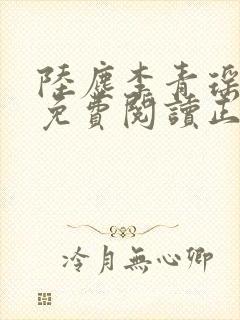 陸塵李青瑶
免費閱讀正
冷月無心卿